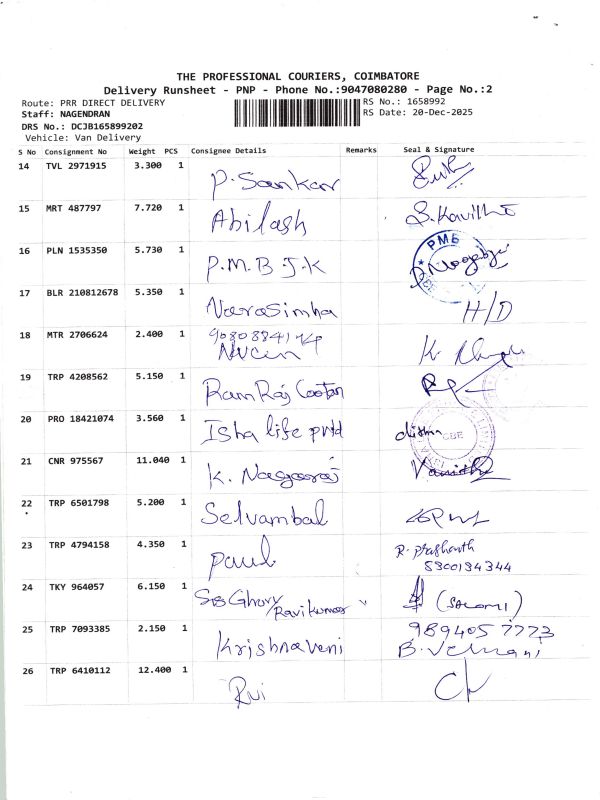 THE PROFESSIONAL COURIERS, COIMBATORE
Delivery Runsheet - PNP - Phone No.:9047080280 - Page No.:2
Route: PRR DIRECT DELIVERY RS No.: 1658992
Staff: NAGENDRAN RS Date: 20-Dec-2025
DRS No.: DCJB165899202
Vehicle: Van Delivery
S No Consignment No Weight PCS Consignee Details Remarks Seal & Signature
14 TVL 2971915 3.300 1 P. Sankar
15 MRT 487797 7.720 1 Abilash S. Kavitha
16 PLN 1535350 5.730 1 P.M.B.J.K PMB
17 BLR 210812678 5.350 1 Narasimha H/D
18 MTR 2706624 2.400 1 K.
19 TRP 4208562 5.150 1 RamRaj Cooton
20 PRO 18421074 3.560 1 Isha life pvtd CBE
21 CNR 975567 11.040 1 K. Nagaraj Vanitha
22 TRP 6501798 5.200 1 Selvambal
23 TRP 4794158 4.350 1 Paul R. Prashanth
5300134344
24 TKY 964057 6.150 1 Ravikumar
25 TRP 7093385 2.150 1 Krishnaveni 989405 7773
B.
26 TRP 6410112 12.400 1